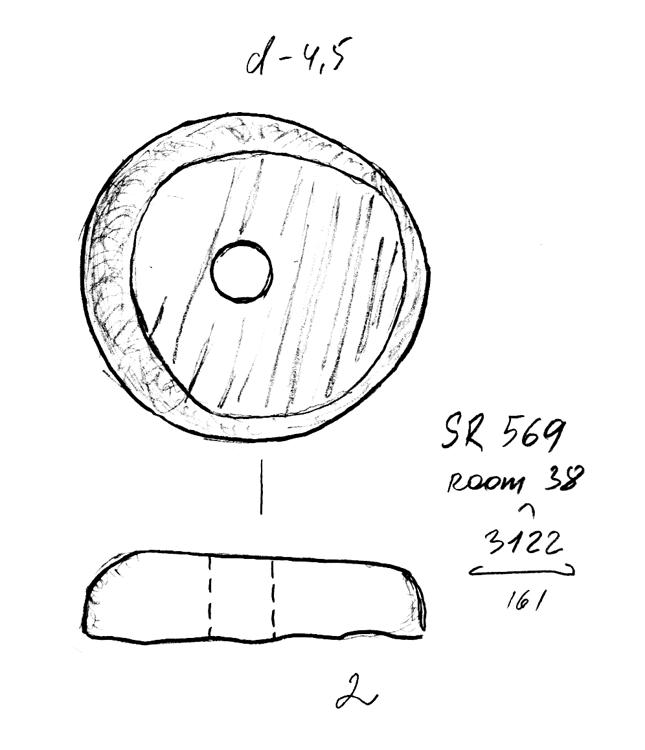 d-4,5
SR 569
room 38
3122
161
2